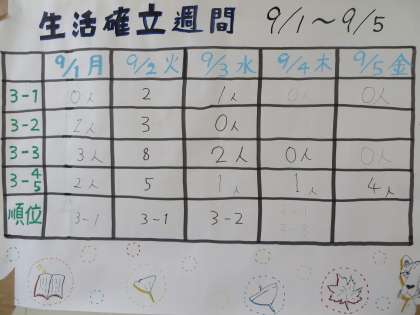 生活確立週間 9/1～9/5
9/1月 9/2火 9/3水 9/4木 9/5金
3-1 0人 2 1人 0人 0人
3-2 2人 3 0人
3-3 3人 8 2人 0人 0人
3-4/5 2人 5 1人 1人 4人
順位 3-1 3-1 3-2